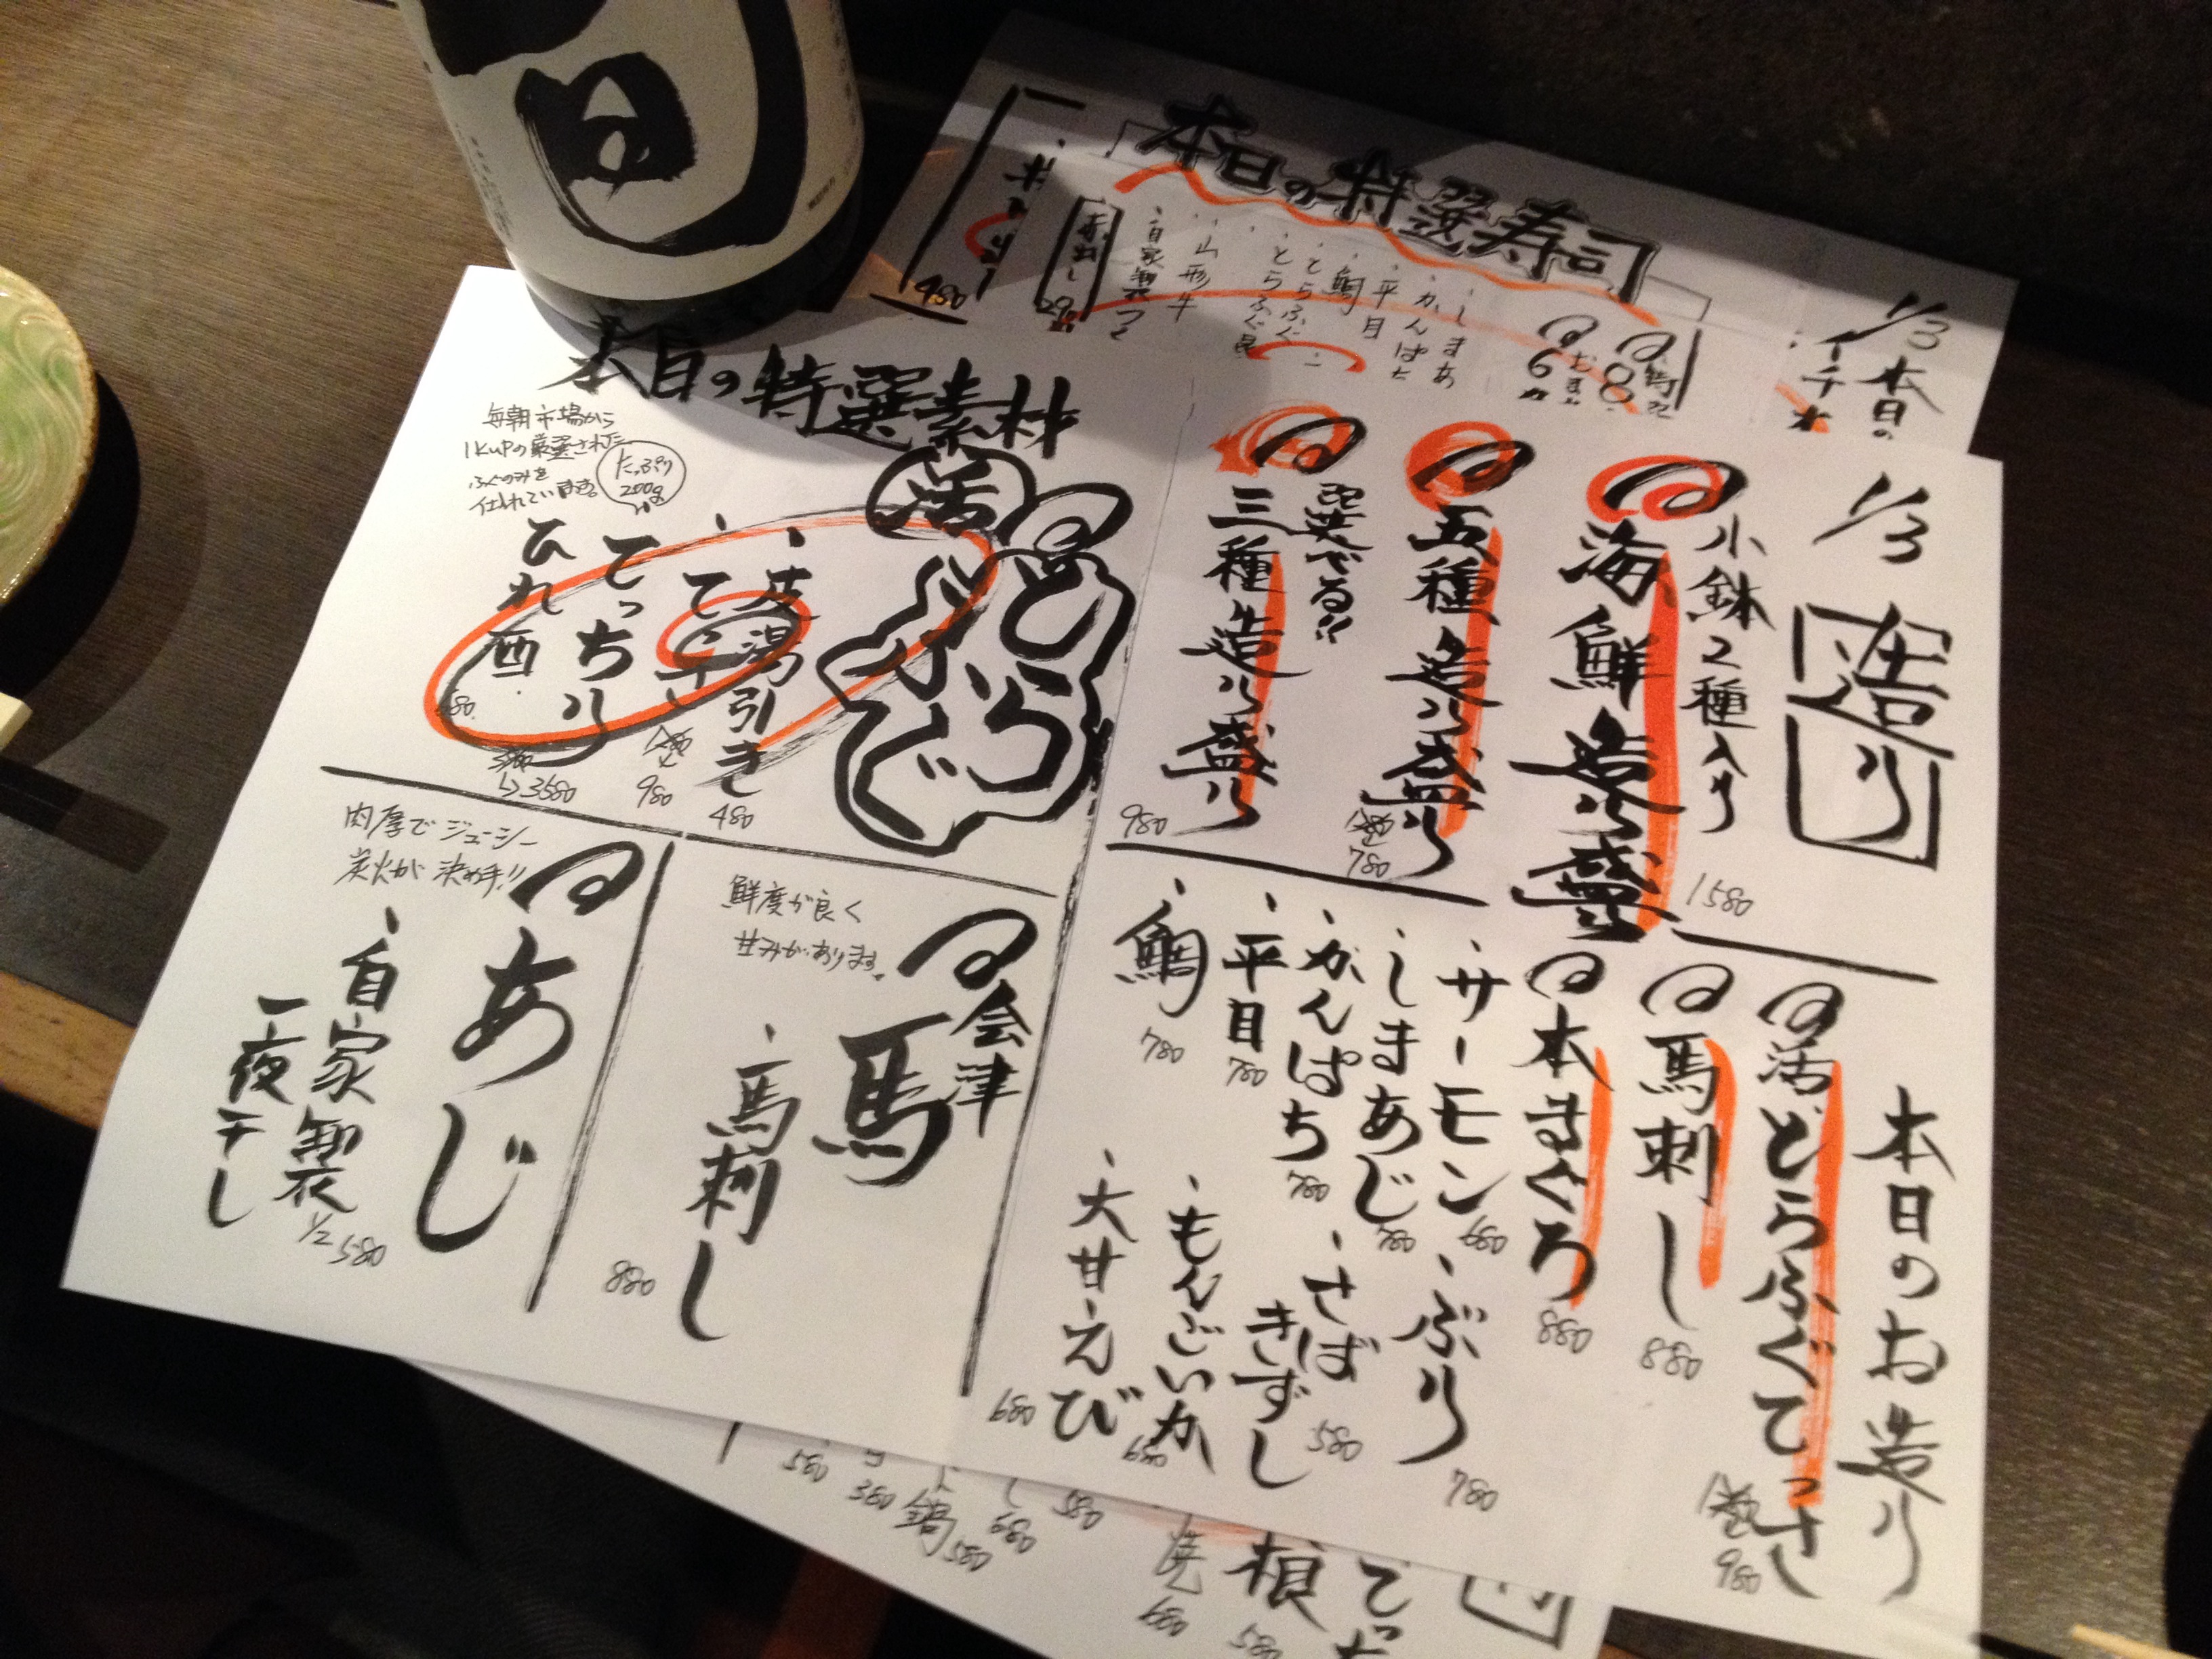 本日の特選寿司
1/3
本日の
イチオ
しまあ
かんぱち
平目
鯛
とらふぐ
とらふぐ昆
山形牛
自家製つく
赤出し
480
1/3
造り
小鉢2種入り
海鮮造り盛
1580
五種造り盛り
780
選べる!!
三種造り盛り
980
本日のお造り
活とらふぐてっさ
980
馬刺し
880
本まぐろ
880
・サーモン
680
・しまあじ
780
・かんぱち
780
・平目
780
・鯛
780
・ぶり
780
・さば
きずし
580
・もんごいか
680
・大甘えび
680
本日の特選素材
活
とらふぐ
毎朝市場から
1kupの厳選された
ふぐのみを
仕入れています。
たっぷり
200g
・皮湯引き
480
・てっさ
980
てっちり
3580
ひれ酒
会津
馬
鮮度が良く
甘みがあります。
・馬刺し
880
あじ
肉厚でジューシー
炭火が決め手!!
・自家製
一夜干し
1/2
580
580
380
鍋
580
680
580
焼
680
580